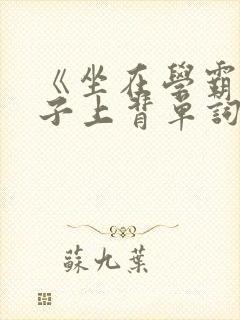 《坐在學霸
子上背單詞
蘇九葉